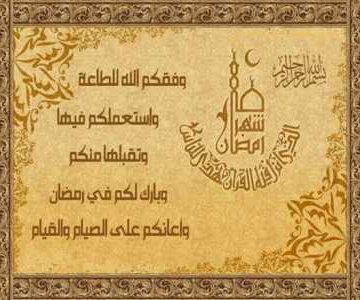 بسم الله الرحمن الرحيم
شهر
رمضان
الذي أنزل فيه القرآن هدى للناس
وفقكم الله للطاعة
واستعملكم فيها
وتقبلها منكم
وبارك لكم في رمضان
وأعانكم على الصيام والقيام